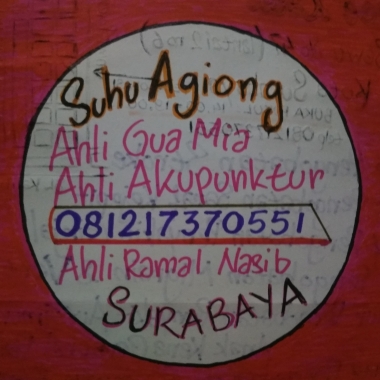 Suhu Agiong
Ahli Gua Mia
Ahli Akupunktur
081217370551
Ahli Ramal Nasib
SURABAYA